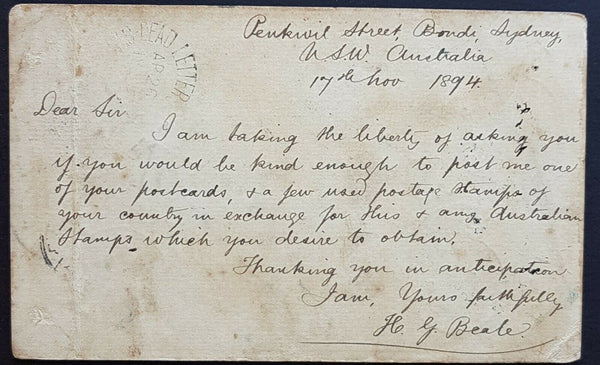 Penkivil Street, Bondi, Sydney,
N.S.W. Australia
17th Nov 1894.
DEAD LETTER
AP 26
Dear Sir
I am taking the liberty of asking you
if you would be kind enough to post me one
of your postcards, & a few used postage stamps of
your country in exchange for this & any Australian
Stamps which you desire to obtain.
Thanking you in anticipation
I am, Yours faithfully
H. G. Beale.